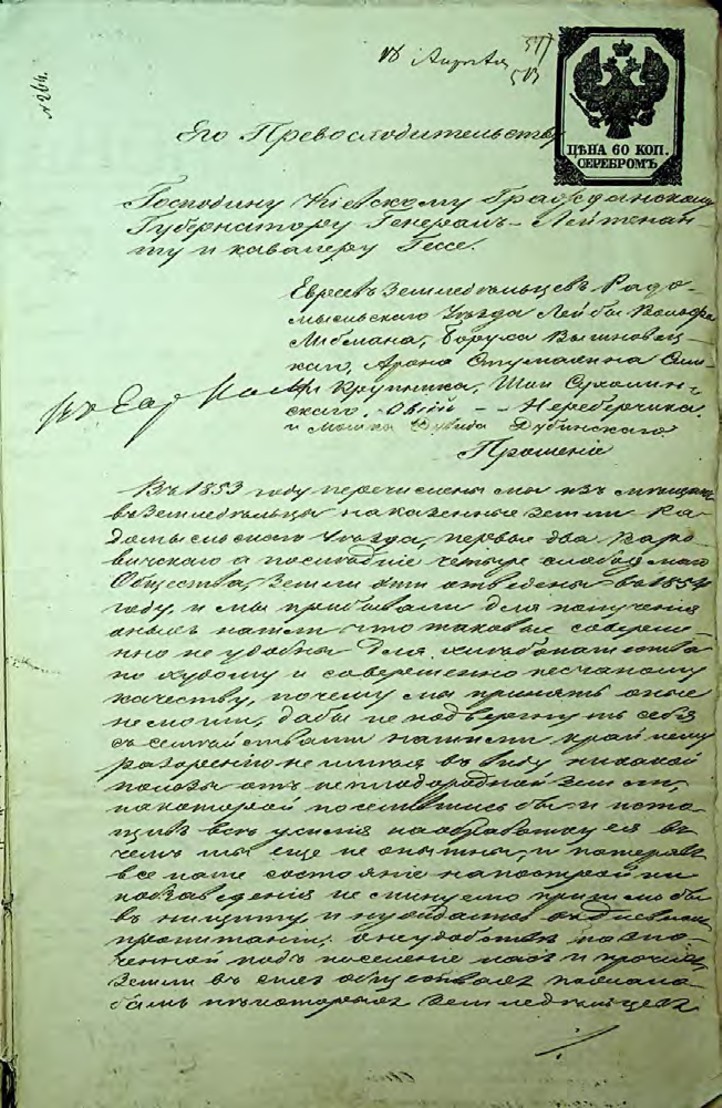 № 264.
18 Апреля
513
ЦѢНА 60 КОП.
СЕРЕБРОМЪ
Его Превосходительству
Господину Кіевскому Гражданскому
Губернатору Генералъ-Лейтенан-
ту и кавалеру Гессе.
Евреевъ Земледѣльцевъ Радо-
мысльскаго Уѣзда Лейбы Вольфа
Либмана, Боруха Вышновец-
каго, Арона
Крупника, Шаи Сухолин-
скаго,
и Мошка Дувида Дубинскаго
Прошеніе
Въ 1853 году перечислены мы изъ мѣщанъ
въ Земледѣльцы на казенные земли Ра-
домысльскаго Уѣзда, первые два Варо-
вичскаго а послѣдніе четыре
Общества, Земли отведены въ 1854
году, и мы прибывали для полученія
оныхъ нашли что таковые соверше-
нно неудобны для хлѣбопашества
по худому и совершенно песчаному
качеству, почему мы принять оные
не могли, дабы не подвергнуть себя
съ семействами нашими крайнему
разоренію не имѣя въ виду никакой
пользы отъ неплодородной земли,
на которой поселившись бы и исто-
щивъ всѣ усилія на обработку ея въ
чемъ мы еще не опытны, и потерявъ
все наше состояніе на постройки
и обзаведенія не минуемо пришли бы
въ нищету и нуждались въ дневномъ
пропитаніи, о неудобствѣ назна-
ченной подъ поселеніе насъ и прочихъ
Земли въ сихъ обществахъ
некоторыхъ Земледѣльцевъ